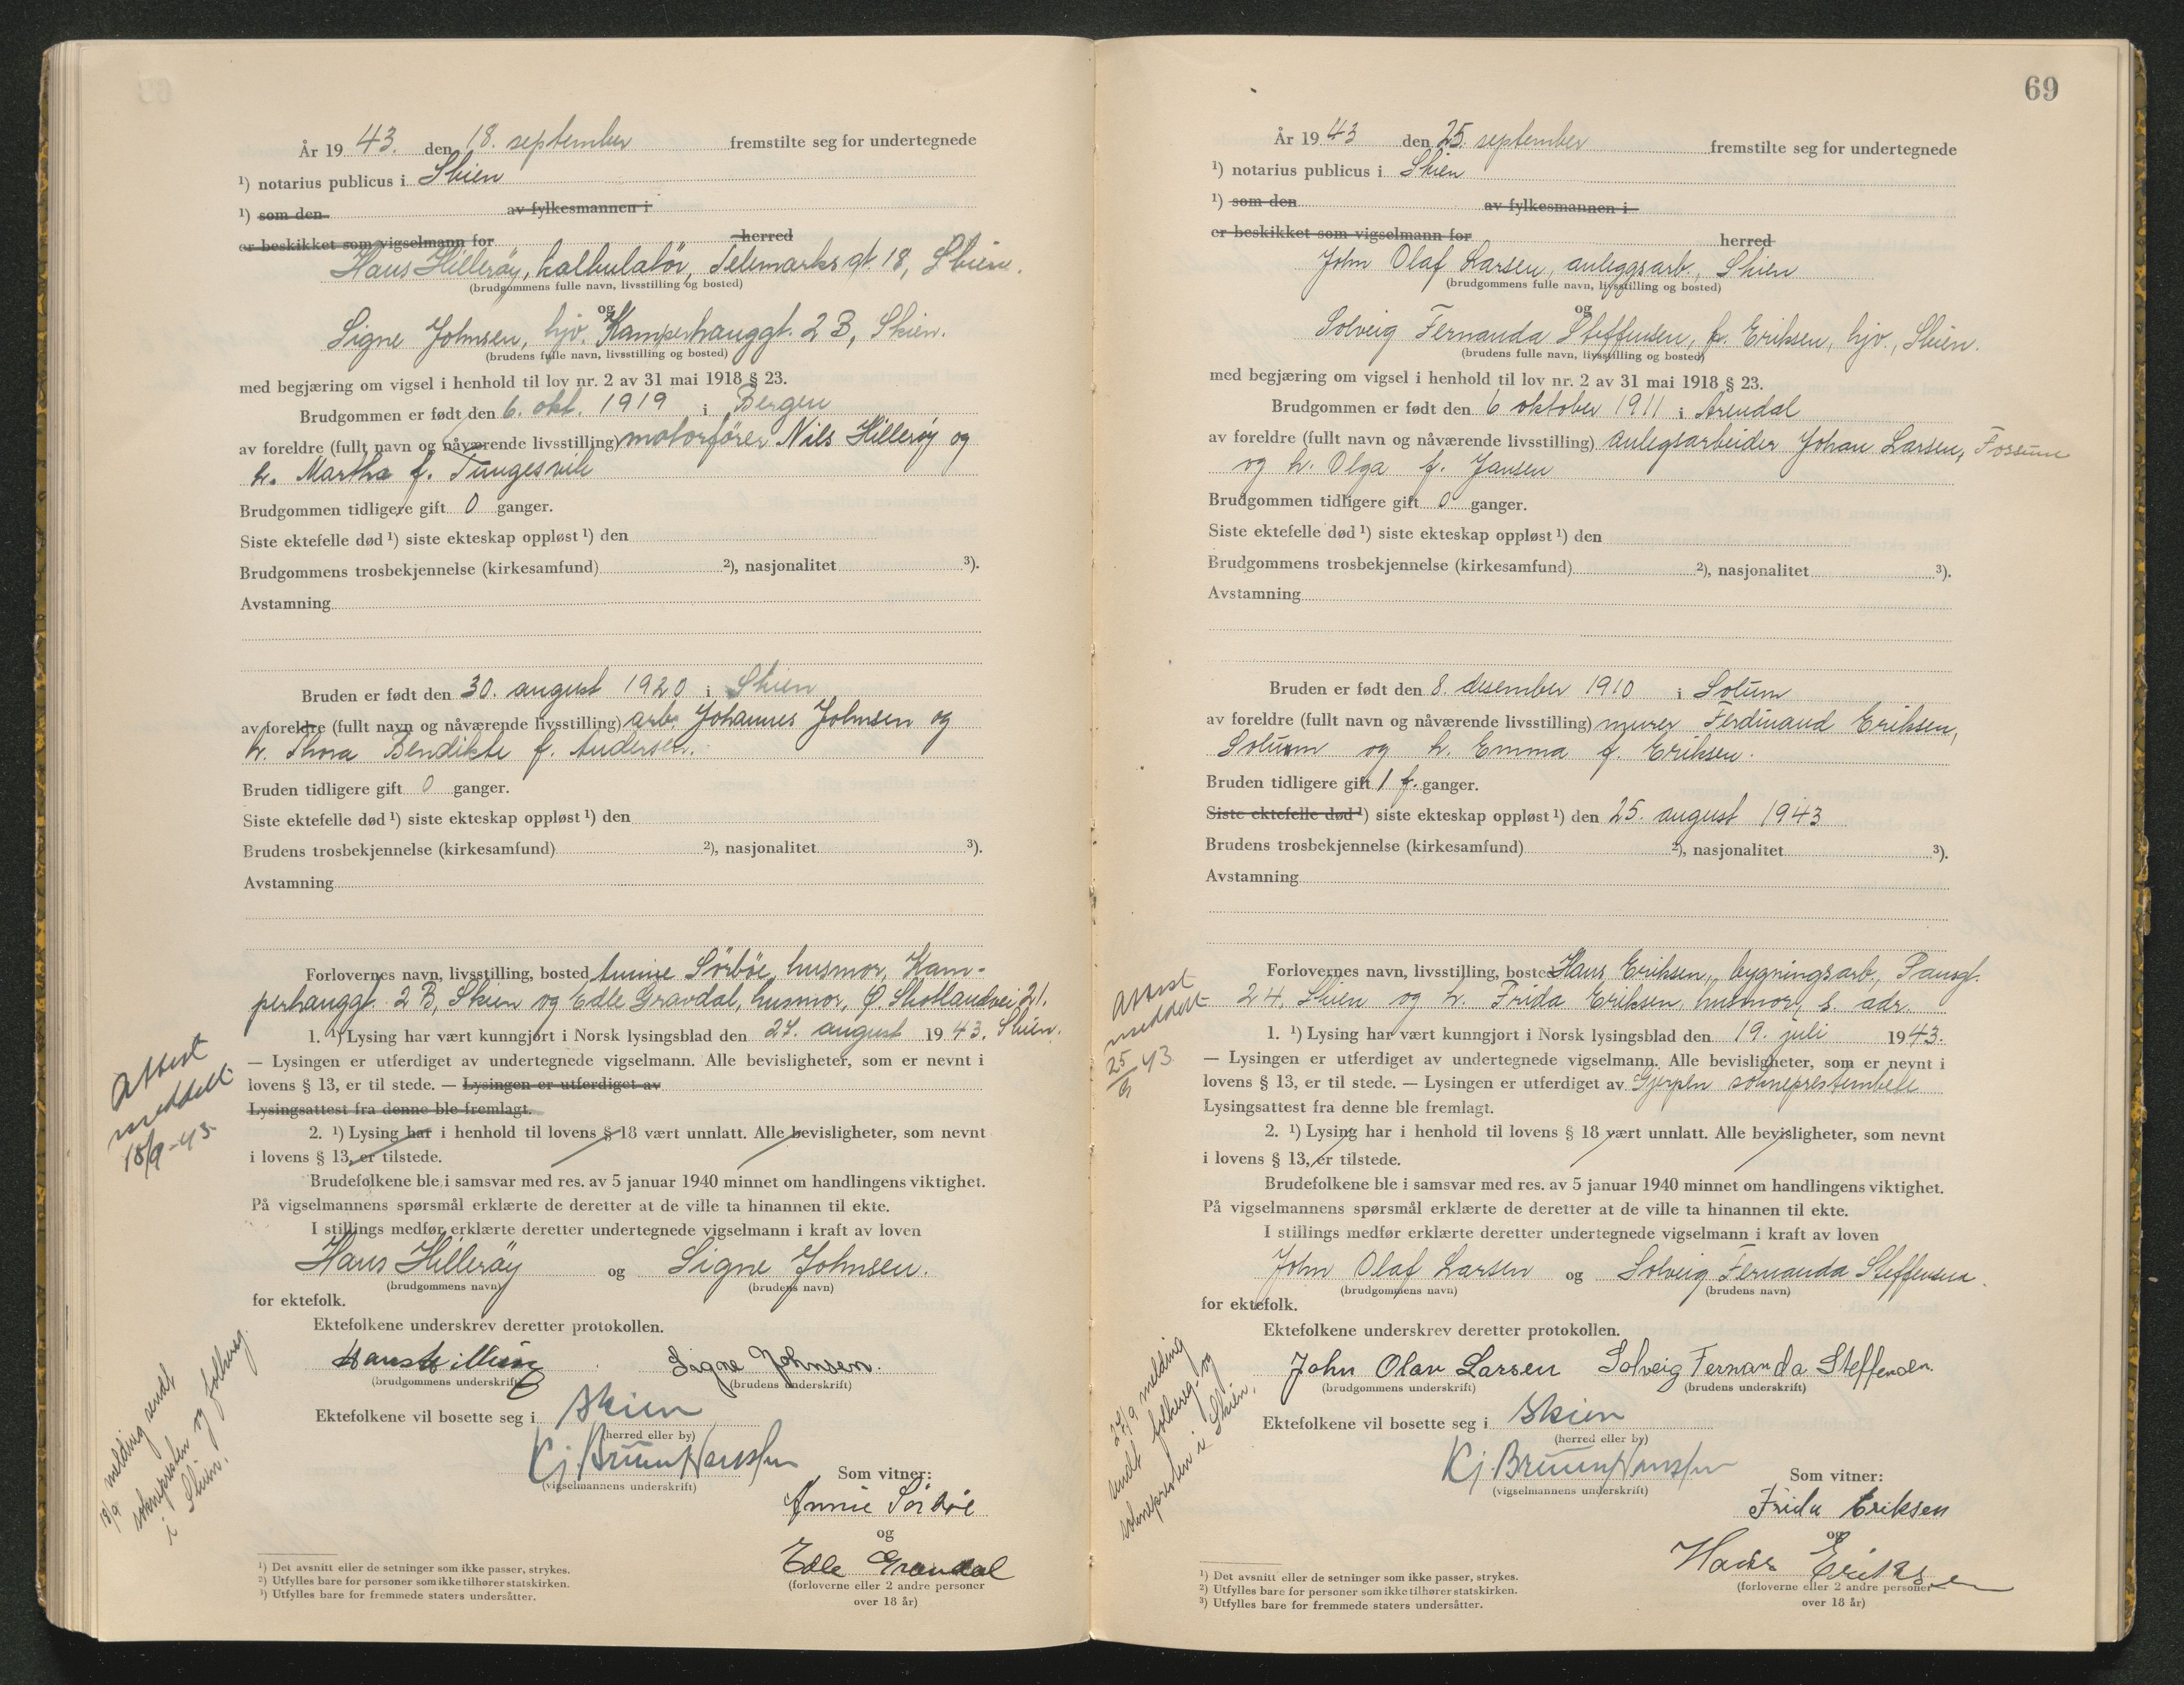 År 19 43. den 18. september fremstilte seg for undertegnede
¹) notarius publicus i Skien
¹) som den av fylkesmannen i
er beskikket som vigselmann for herred
Hans Hillerøy, kalkulatør, Telemarksgt. 18, Skien.
(brudgommens fulle navn, livsstilling og bosted)
og
Signe Johnsen, hjv. Kamperhauggt. 2 B, Skien.
(brudens fulle navn, livsstilling og bosted)
med begjæring om vigsel i henhold til lov nr. 2 av 31 mai 1918 § 23.
Brudgommen er født den 6. okt. 1919 i Bergen
av foreldre (fullt navn og nåværende livsstilling) motorfører Nils Hillerøy og
h. Martha f. Tungesvik
Brudgommen tidligere gift 0 ganger.
Siste ektefelle død ¹) siste ekteskap oppløst ¹) den
Brudgommens trosbekjennelse (kirkesamfund) ²), nasjonalitet ³).
Avstamning
Bruden er født den 30. august 1920 i Skien
av foreldre (fullt navn og nåværende livsstilling) arb. Johannes Johnsen og
h. Thora Bendikte f. Andersen.
Bruden tidligere gift 0 ganger.
Siste ektefelle død ¹) siste ekteskap oppløst ¹) den
Brudens trosbekjennelse (kirkesamfund) ²), nasjonalitet ³).
Avstamning
Forlovernes navn, livsstilling, bosted Annie Sörböe, husmor, Kam-
perhauggt. 2 B, Skien og Edle Gravdal, husmor, Ø. Skotlandsvei 21.
1. ¹) Lysing har vært kunngjort i Norsk lysingsblad den 24. august 19 43. Skien.
— Lysingen er utferdiget av undertegnede vigselmann. Alle bevisligheter, som er nevnt i
lovens § 13, er til stede. — Lysingen er utferdiget av
Lysingsattest fra denne ble fremlagt.
2. ¹) Lysing har i henhold til lovens § 18 vært unnlatt. Alle bevisligheter, som nevnt
i lovens § 13, er tilstede.
Brudefolkene ble i samsvar med res. av 5 januar 1940 minnet om handlingens viktighet.
På vigselmannens spørsmål erklærte de deretter at de ville ta hinannen til ekte.
I stillings medfør erklærte deretter undertegnede vigselmann i kraft av loven
Hans Hillerøy og Signe Johnsen.
(brudgommens navn) (brudens navn)
for ektefolk.
Ektefolkene underskrev deretter protokollen.
Hans Hillerøy Signe Johnsen.
(brudgommens underskrift) (brudens underskrift)
Ektefolkene vil bosette seg i Skien
(herred eller by)
Kj. Bruun Hanssen
(vigselmannens underskrift)
Som vitner:
Annie Sörböe
og
Edle Gravdal
(forloverne eller 2 andre personer
over 18 år)
¹) Det avsnitt eller de setninger som ikke passer, strykes.
²) Utfylles bare for personer som ikke tilhører statskirken.
³) Utfylles bare for fremmede staters undersåtter.
Attest
meddelt
18/9-43
18/9 melding sendt
soknepresten og folkereg.
i Skien.
69
År 19 43 den 25. september fremstilte seg for undertegnede
¹) notarius publicus i Skien
¹) som den av fylkesmannen i
er beskikket som vigselmann for herred
John Olaf Larsen, anleggsarb., Skien
(brudgommens fulle navn, livsstilling og bosted)
og
Solveig Fernanda Steffensen, f. Eriksen, hjv., Skien.
(brudens fulle navn, livsstilling og bosted)
med begjæring om vigsel i henhold til lov nr. 2 av 31 mai 1918 § 23.
Brudgommen er født den 6 oktober 1911 i Arendal
av foreldre (fullt navn og nåværende livsstilling) anlegsarbeider Johan Larsen, Fossum
og h. Olga f. Jansen
Brudgommen tidligere gift 0 ganger.
Siste ektefelle død ¹) siste ekteskap oppløst ¹) den
Brudgommens trosbekjennelse (kirkesamfund) ²), nasjonalitet ³).
Avstamning
Bruden er født den 8. desember 1910 i Solum
av foreldre (fullt navn og nåværende livsstilling) murer Ferdinand Eriksen,
Solum og h. Emma f. Eriksen.
Bruden tidligere gift 1 g. ganger.
Siste ektefelle død ¹) siste ekteskap oppløst ¹) den 25. august 1943
Brudens trosbekjennelse (kirkesamfund) ²), nasjonalitet ³).
Avstamning
Forlovernes navn, livsstilling, bosted Hans Eriksen, bygningsarb.,
24, Skien og h. Frida Eriksen, husmor, s. adr.
1. ¹) Lysing har vært kunngjort i Norsk lysingsblad den 19. juli 19 43.
— Lysingen er utferdiget av undertegnede vigselmann. Alle bevisligheter, som er nevnt i
lovens § 13, er til stede. — Lysingen er utferdiget av Gjerpen sokneprestembete
Lysingsattest fra denne ble fremlagt.
2. ¹) Lysing har i henhold til lovens § 18 vært unnlatt. Alle bevisligheter, som nevnt
i lovens § 13, er tilstede.
Brudefolkene ble i samsvar med res. av 5 januar 1940 minnet om handlingens viktighet.
På vigselmannens spørsmål erklærte de deretter at de ville ta hinannen til ekte.
I stillings medfør erklærte deretter undertegnede vigselmann i kraft av loven
John Olaf Larsen og Solveig Fernanda Steffensen.
(brudgommens navn) (brudens navn)
for ektefolk.
Ektefolkene underskrev deretter protokollen.
John Olav Larsen Solveig Fernanda Steffensen.
(brudgommens underskrift) (brudens underskrift)
Ektefolkene vil bosette seg i Skien
(herred eller by)
Kj. Bruun Hanssen
(vigselmannens underskrift)
Som vitner:
Frida Eriksen
og
Hans Eriksen
(forloverne eller 2 andre personer
over 18 år)
¹) Det avsnitt eller de setninger som ikke passer, strykes.
²) Utfylles bare for personer som ikke tilhører statskirken.
³) Utfylles bare for fremmede staters undersåtter.
Attest
meddelt
25/9 43
27/9 melding
sendt folkereg. og
soknepresten i Skien.